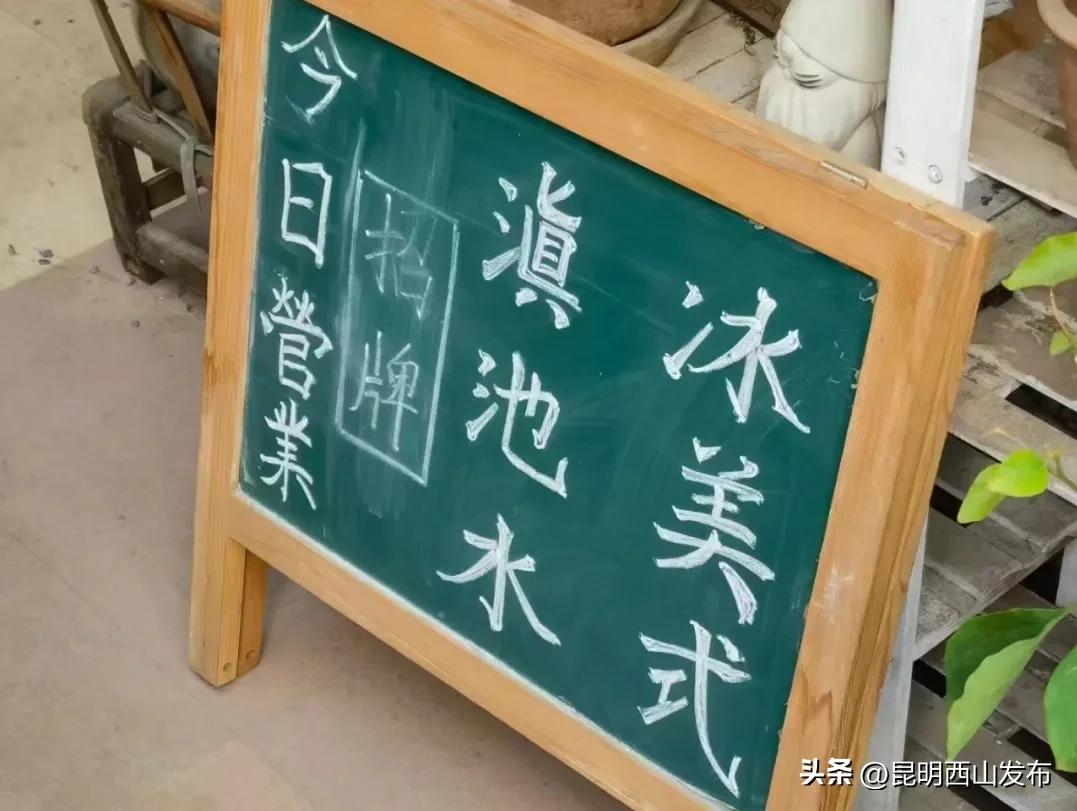 冰美式
滇池水
招牌
今日營業
头条 @昆明西山发布